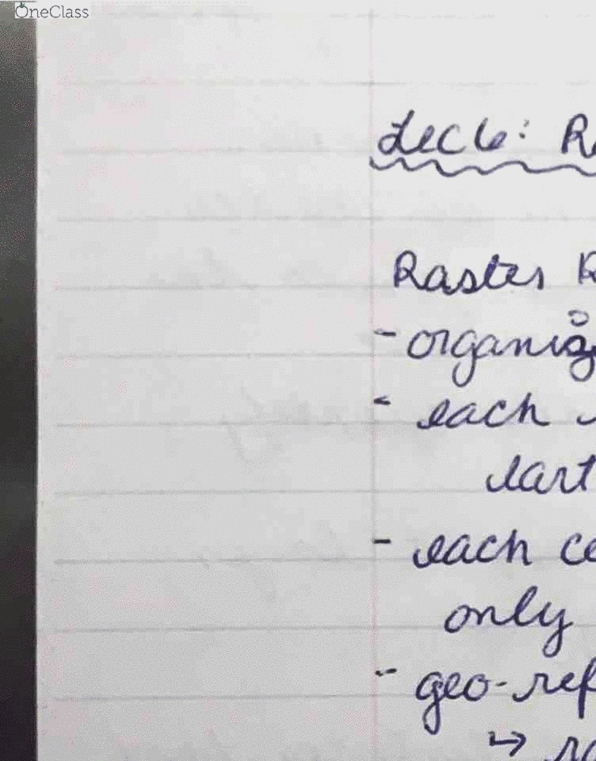 OneClass
Lec 6: R
Raster R
- organiz
- each
- each ce
only
- geo-ref
↳